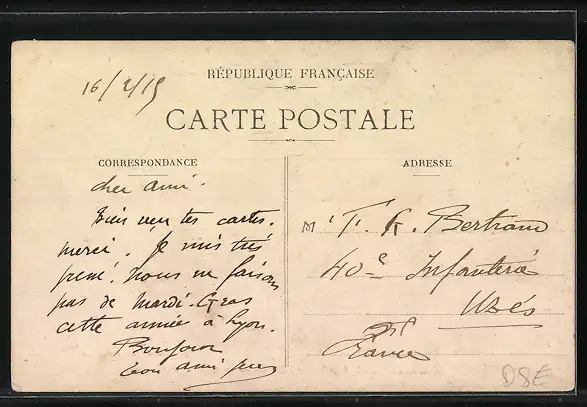 16/2/15
RÉPUBLIQUE FRANÇAISE
CARTE POSTALE
CORRESPONDANCE
cher ami.
Bien reçu tes cartes.
merci. Je suis très
peiné. Nous ne faisons
pas de Mardi-Gras
cette année à Lyon.
Bonjour
Ton ami
ADRESSE
M T. K. Bertrand
40e Infanterie
Uzès
France
D8E